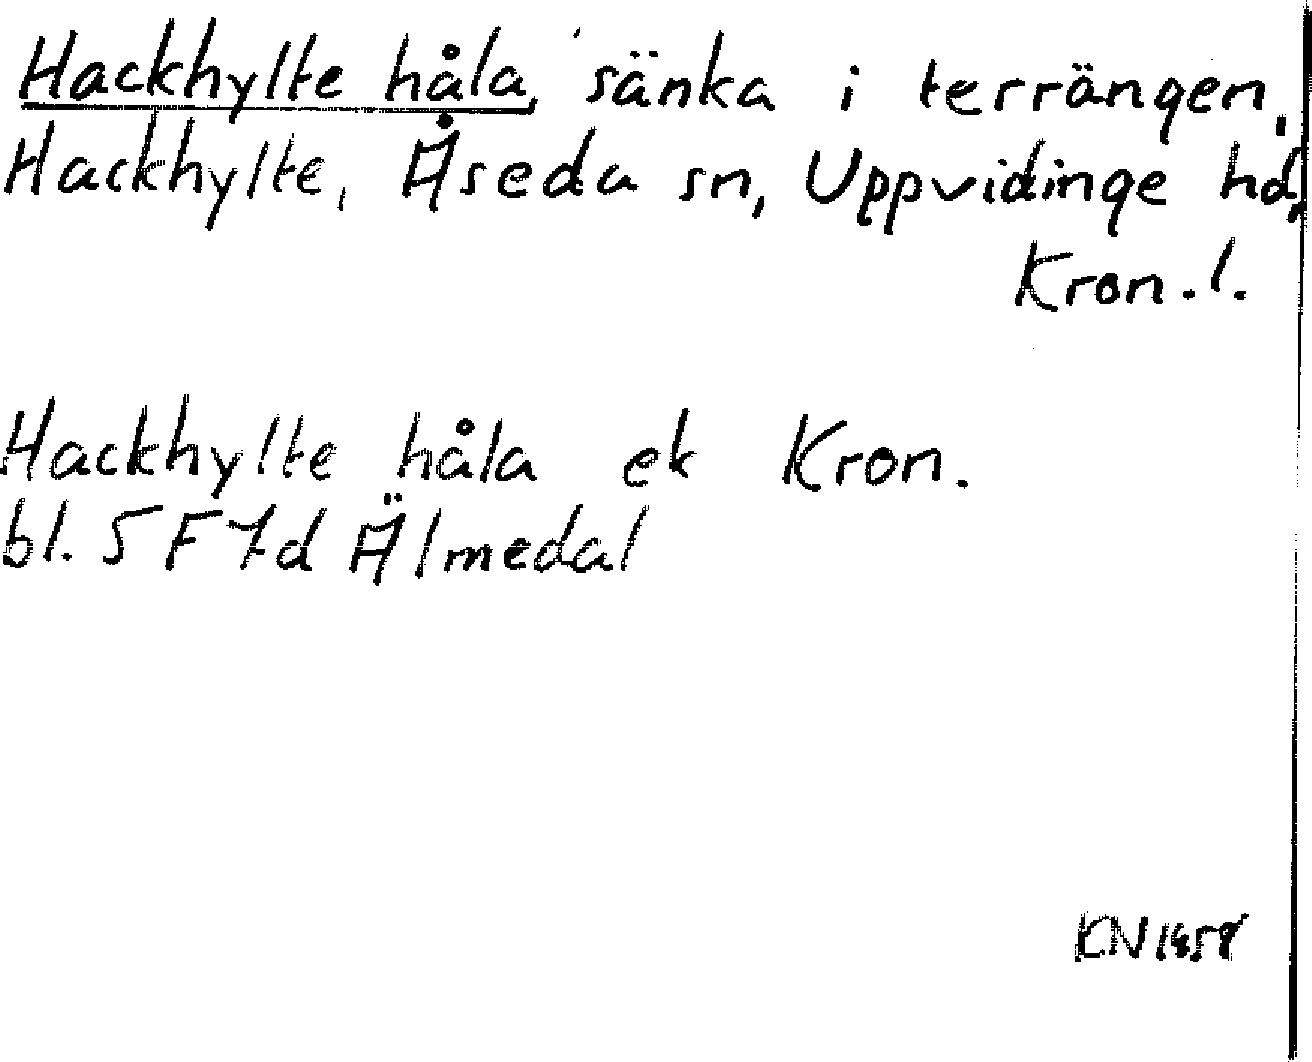 Hackhylte håla, sänka i terrängen,
Hackhylte, Åseda sn, Uppvidinge hd,
Kron.l.
Hackhylte håla ek Kron.
bl. 5 F 7d Älmedal
KN